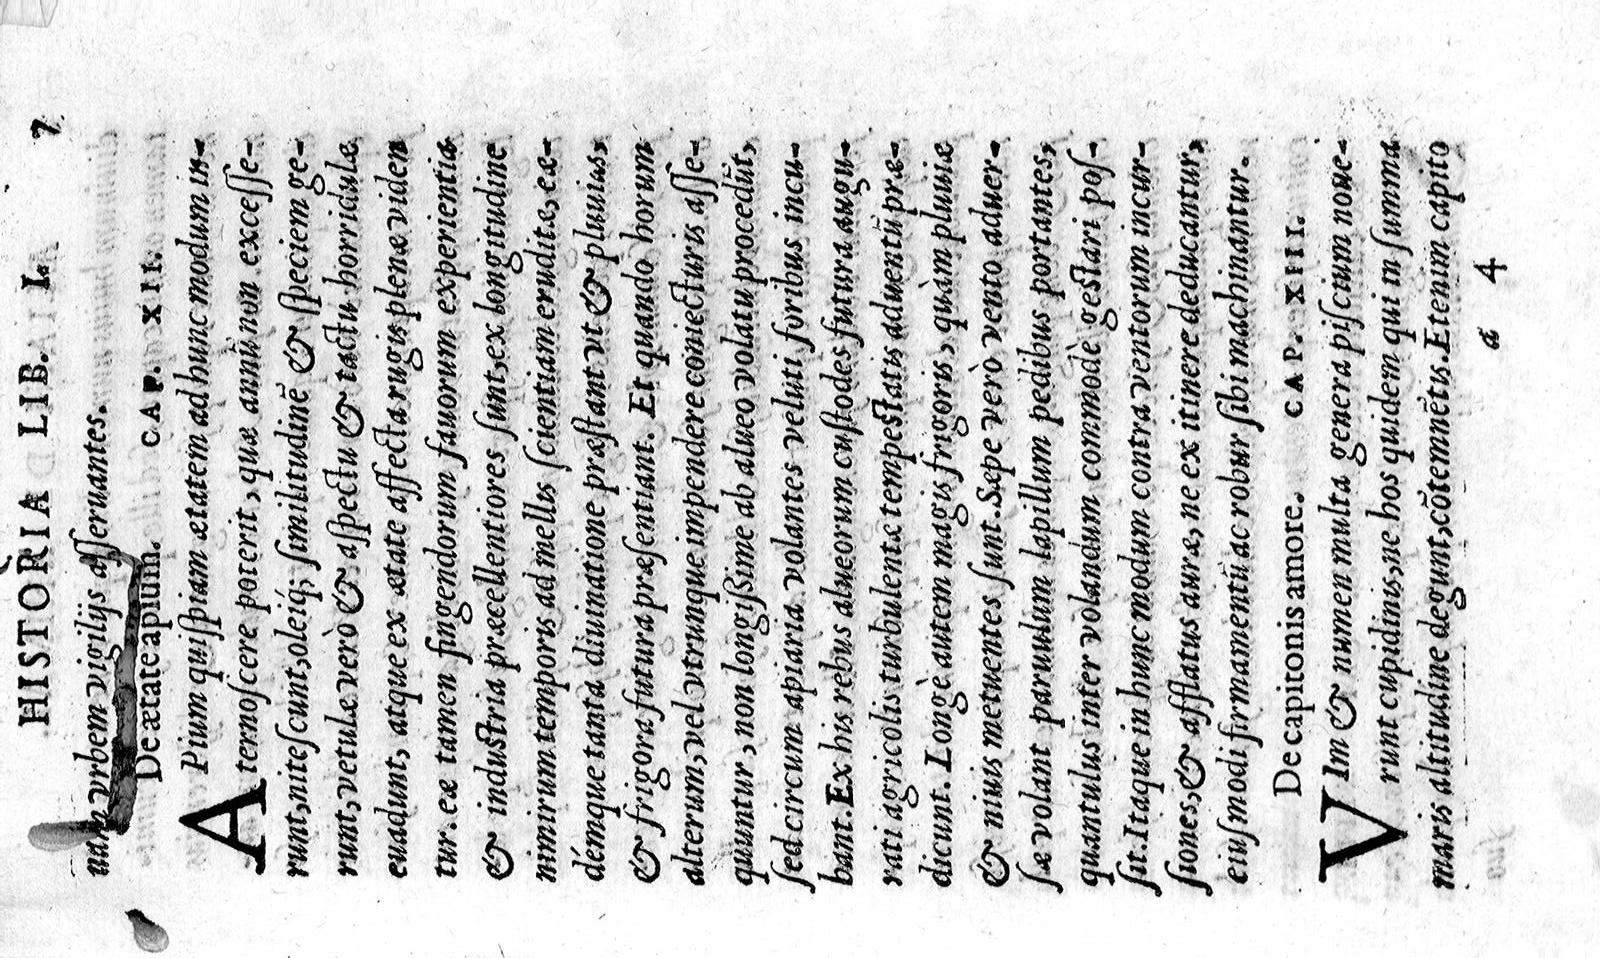 HISTORIA LIB. I. 7
nam vrbem vigilijs aſſeruantes.
De ætate apium. CAP. XII.
APium quiſpiam ætatem ad hunc modum in-
ternoſcere poterit, quæ anniñon exceſſe-
runt, niteſcunt, oleiq; ſimilitudinẽ & ſpeciem ge-
runt, vetulæ verò & aſpectu & tactu horridulæ
euadunt, atque ex ætate affecta rugis plenæ viden
tur. eæ tamen fingendorum fauorum experientia
& induſtria præcellentiores ſunt, ex longitudine
nimirum temporis ad mellis ſcientiam eruditæ, eæ-
démque tanta diuinatione præſtant vt & pluuias,
& frigora futura præſentiant. Et quando horum
alterum, vel vtrunque impendere coniecturis aſſe-
quuntur, non longiſſime ab alueo volatu procedũt,
ſed circum apiaria volantes veluti foribus incu-
bant. Ex his rebus alueorum cuſtodes futura augu-
rati agricolis turbulentæ tempeſtatis aduentũ præ-
dicunt. Longè autem magis frigoris, quàm pluuiæ
& niuis metuentes ſunt. Sæpe verò vento aduer-
ſæ volant paruulum lapillum pedibus portantes,
quantulus inter volandum commodè geſtari poſ-
ſit. Itaque in hunc modum contra ventorum incur-
ſiones, & afflatus auræ, ne ex itinere deducantur,
eiuſmodi firmamentũ ac robur ſibi machinantur.
De capitonis amore. CAP. XIII.
VIm & numen multa genera piſcium noue-
runt cupidinis, ne hos quidem qui in ſumma
maris altitudine degunt, cõtemnẽtis. Etenim capito
a 4